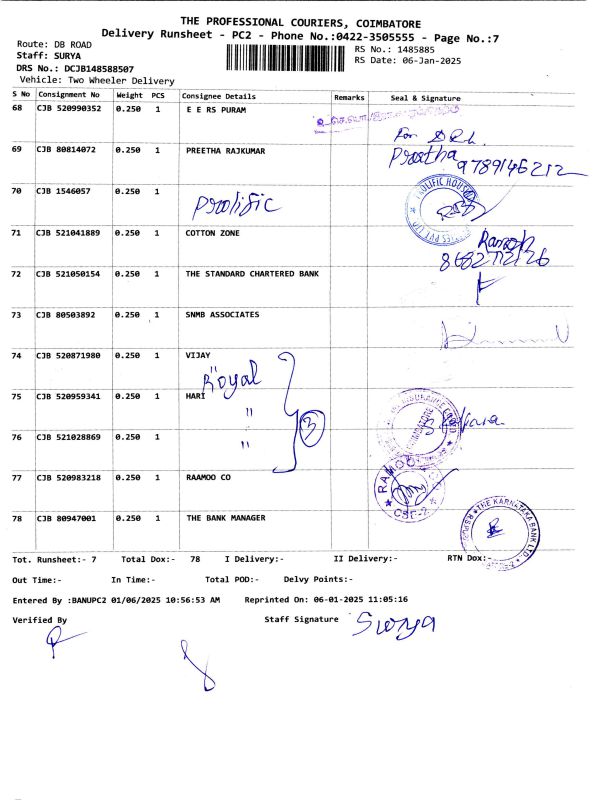 THE PROFESSIONAL COURIERS, COIMBATORE
Delivery Runsheet - PC2 - Phone No.:0422-3505555 - Page No.:7
Route: DB ROAD
RS No.: 1485885
Staff: SURYA
RS Date: 06-Jan-2025
DRS No.: DCJB148588507
Vehicle: Two Wheeler Delivery
S No Consignment No Weight PCS Consignee Details Remarks Seal & Signature
68 CJB 520990352 0.250 1 E E RS PURAM
For
69 CJB 80814072 0.250 1 PREETHA RAJKUMAR Preetha
9789146212
70 CJB 1546057 0.250 1 Prolific PROLIFIC HOUSE
71 CJB 521041889 0.250 1 COTTON ZONE Ramesh
72 CJB 521050154 0.250 1 THE STANDARD CHARTERED BANK
73 CJB 80503892 0.250 1 SNMB ASSOCIATES
74 CJB 520871980 0.250 1 VIJAY
Royal
75 CJB 520959341 0.250 1 HARI
" 3
76 CJB 521028869 0.250 1
"
77 CJB 520983218 0.250 1 RAAMOO CO RAAMOO
78 CJB 80947001 0.250 1 THE BANK MANAGER THE KARNATAKA BANK LTD.
Tot. Runsheet:- 7 Total Dox:- 78 I Delivery:- II Delivery:- RTN Dox:-
Out Time:- In Time:- Total POD:- Delvy Points:-
Entered By :BANUPC2 01/06/2025 10:56:53 AM Reprinted On: 06-01-2025 11:05:16
Verified By Staff Signature Surya